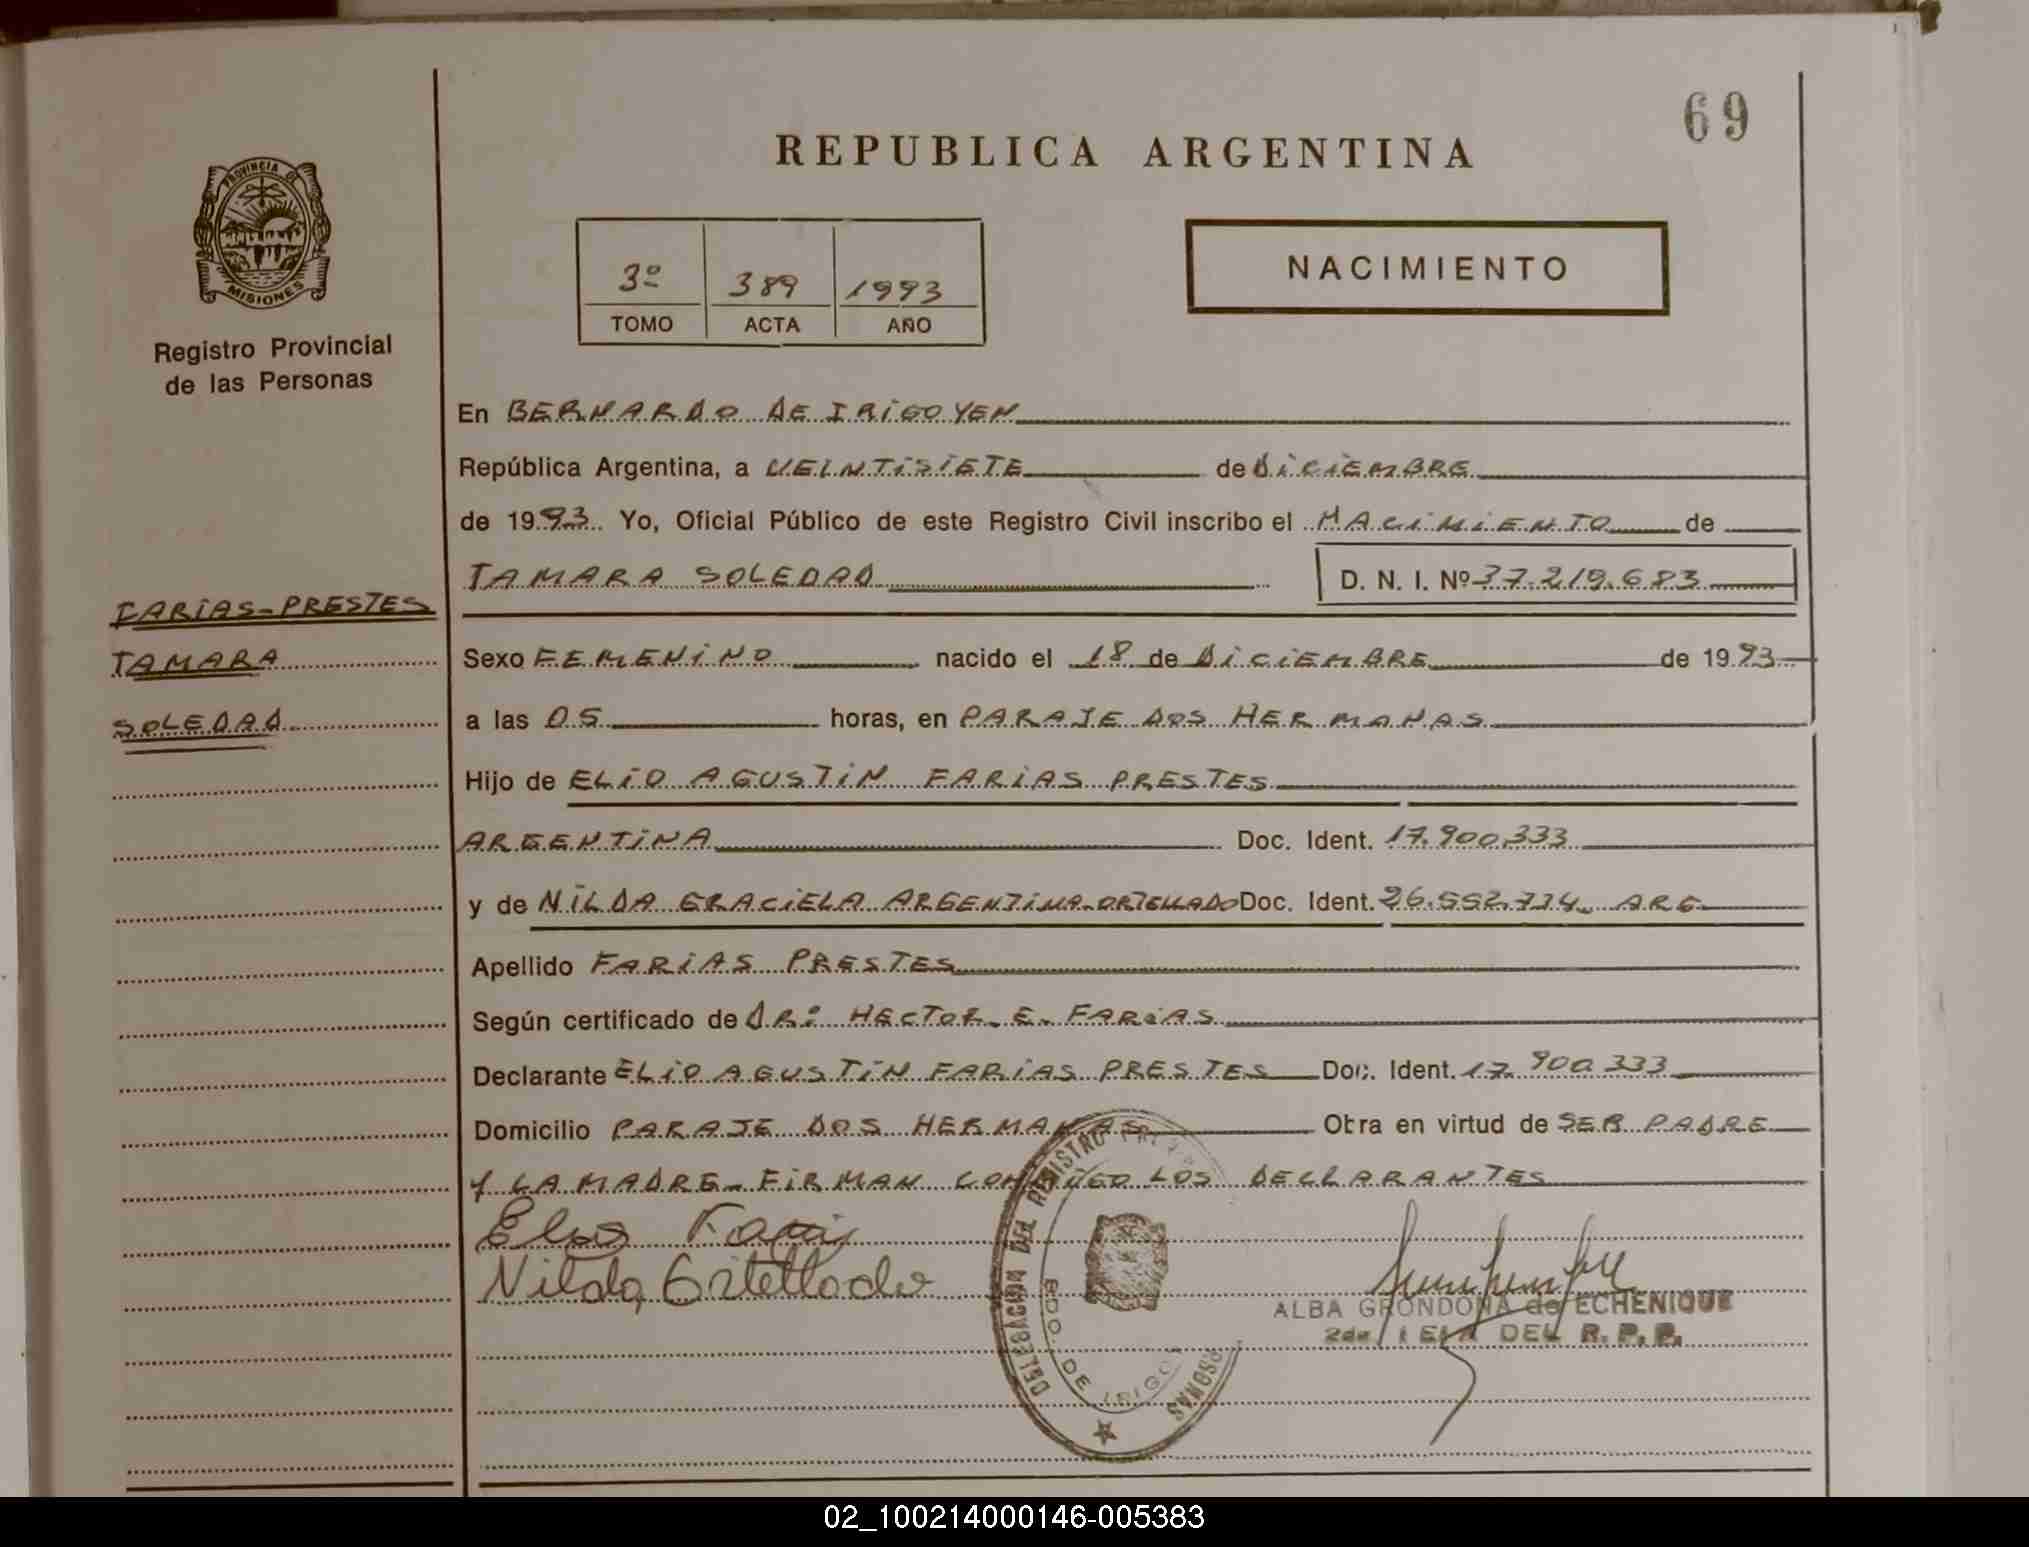 69
REPUBLICA ARGENTINA
PROVINCIA DE
MISIONES
Registro Provincial
de las Personas
3º 389 1993
TOMO ACTA AÑO
NACIMIENTO
En BERNARDO DE IRIGOYEN
República Argentina, a VEINTISIETE de DICIEMBRE
de 1993 Yo, Oficial Público de este Registro Civil inscribo el NACIMIENTO de
TAMARA SOLEDAD D. N. I. Nº 37.219.683
FARIAS-PRESTES
TAMARA
SOLEDAD
Sexo FEMENINO nacido el 18 de DICIEMBRE de 1993
a las 05 horas, en PARAJE DOS HERMANAS
Hijo de ELIO AGUSTIN FARIAS PRESTES
ARGENTINA Doc. Ident. 17.900.333
y de NILDA GRACIELA ARGENTINA-ORTELLADO Doc. Ident. 26.552.774 ARG
Apellido FARIAS PRESTES
Según certificado de DR: HECTOR E. FARIAS
Declarante ELIO AGUSTIN FARIAS PRESTES Doc. Ident. 17.900.333
Domicilio PARAJE DOS HERMANAS Obra en virtud de SER PADRE
Y LA MADRE- FIRMAN CONMIGO LOS DECLARANTES
Elio Farias
Nilda Ortellado
DELEGACION DEL REGISTRO
BDO. DE IRIGO
ALBA GRONDONA de ECHENIQUE
DEL R. P. P.
02_100214000146-005383